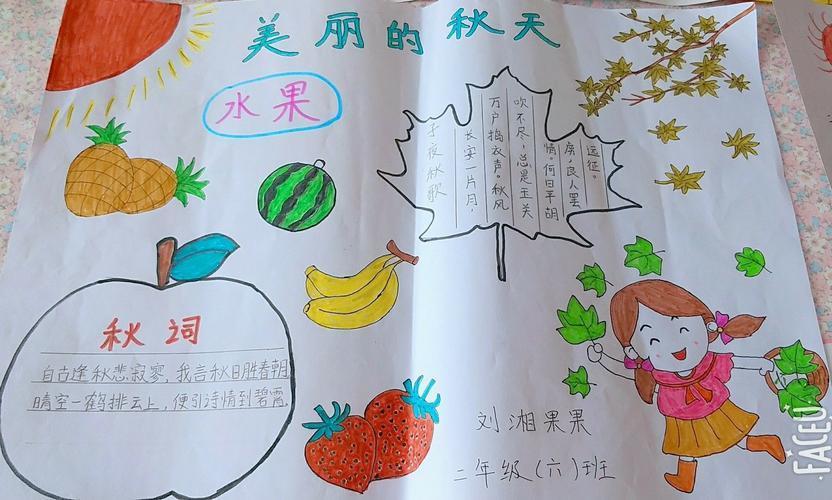 美丽的秋天
水果
子夜秋歌
长安一片月，
万户捣衣声。秋风
吹不尽，总是玉关
情。何日平胡
虏，良人罢
远征。
秋词
自古逢秋悲寂寥，我言秋日胜春朝
晴空一鹤排云上，便引诗情到碧霄。
刘湘果果
二年级(六)班
FACEU